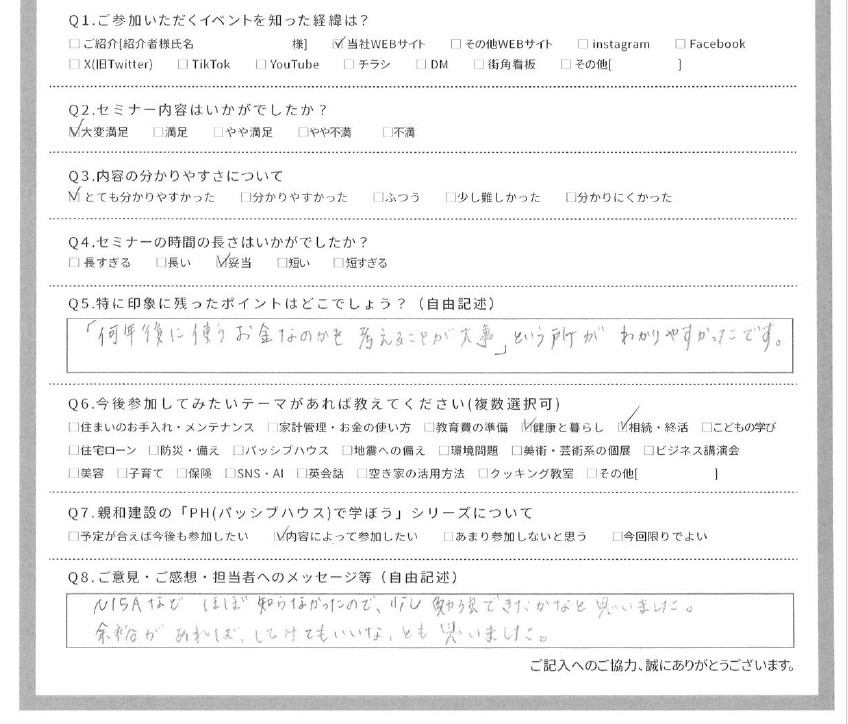 Q1.ご参加いただくイベントを知った経緯は?
□ご紹介[紹介者様氏名 様] ☑当社WEBサイト □その他WEBサイト □instagram □Facebook
□X(旧Twitter) □TikTok □YouTube □チラシ □DM □街角看板 □その他[ ]
Q2.セミナー内容はいかがでしたか?
☑大変満足 □満足 □やや満足 □やや不満 □不満
Q3.内容の分かりやすさについて
☑とても分かりやすかった □分かりやすかった □ふつう □少し難しかった □分かりにくかった
Q4.セミナーの時間の長さはいかがでしたか?
□長すぎる □長い ☑妥当 □短い □短すぎる
Q5.特に印象に残ったポイントはどこでしょう?(自由記述)
「何年後に使うお金なのかを考えることが大事」という所がわかりやすかったです。
Q6.今後参加してみたいテーマがあれば教えてください(複数選択可)
□住まいのお手入れ・メンテナンス □家計管理・お金の使い方 □教育費の準備 ☑健康と暮らし ☑相続・終活 □こどもの学び
□住宅ローン □防災・備え □パッシブハウス □地震への備え □環境問題 □美術・芸術系の個展 □ビジネス講演会
□美容 □子育て □保険 □SNS・AI □英会話 □空き家の活用方法 □クッキング教室 □その他[ ]
Q7.親和建設の「PH(パッシブハウス)で学ぼう」シリーズについて
□予定が合えば今後も参加したい ☑内容によって参加したい □あまり参加しないと思う □今回限りでよい
Q8.ご意見・ご感想・担当者へのメッセージ等(自由記述)
NISAなど ほぼ知らなかったので、少し勉強できたかなと思いました。
余裕があれば、しておいてもいいな、とも思いました。
ご記入へのご協力、誠にありがとうございます。